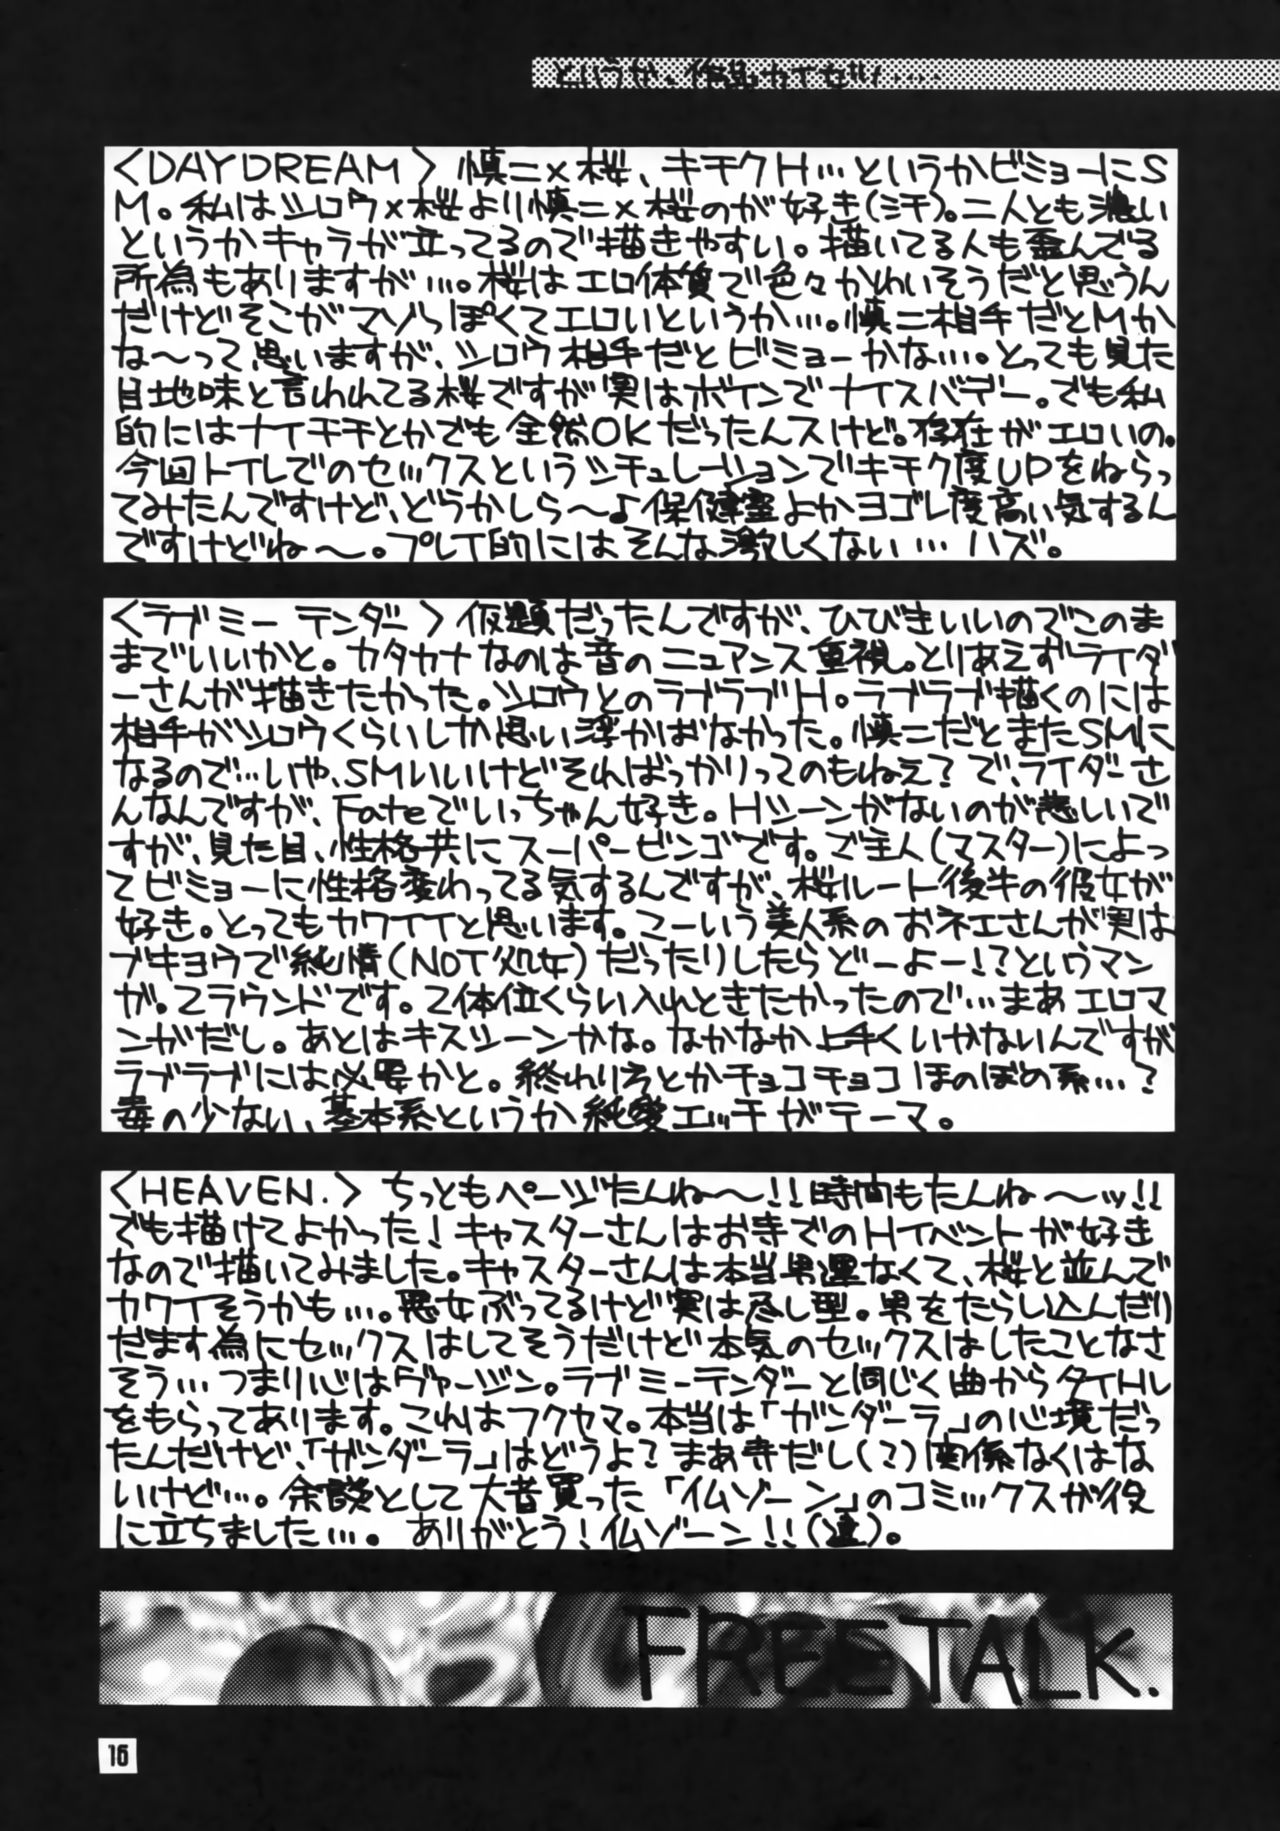 というか、作品カイセツ.....
〈DAYDREAM〉慎二×桜、キチクH…というかビミョーにS
M。私はシロウ×桜より慎二×桜のが好き(汗)。二人とも濃い
というかキャラが立ってるので描きやすい。描いてる人も歪んでる
所為もありますが…。桜はエロ体質で色々かわいそうだと思うん
だけどそこがマゾっぽくてエロいというか…。慎二相手だとMか
な〜って思いますが、シロウ相手だとビミョーかな…。とっても見た
目地味と言われてる桜ですが実はボインでナイスバデー。でも私
的にはナイチチとかでも全然OKだったんスけど。存在がエロいの。
今回トイレでのセックスというシチュレーションでキチク度UPをねらっ
てみたんですけど、どうかしら〜♪保健室よかヨゴレ度高い気するん
ですけどね〜。プレイ的にはそんな激しくない…ハズ。
〈ラブミーテンダー〉仮題だったんですが、ひびきいいのでこのま
までいいかと。カタカナなのは音のニュアンス重視。とりあえずライダ
ーさんが描きたかった。シロウとのラブラブH。ラブラブ描くのには
相手がシロウくらいしか思い浮かばなかった。慎二だとまたSMに
なるので…いや、SMいいけどそればっかりってのもねえ?で、ライダーさ
んなんですが、Fateでいっちゃん好き。Hシーンがないのが悲しいで
すが、見た目、性格共にスーパービンゴです。ご主人(マスター)によっ
てビミョーに性格変わってる気するんですが、桜ルート後半の彼女が
好き。とってもカワイイと思います。こーいう美人系のおネエさんが実は
ブキヨウで純情(NOT処女)だったりしたらどーよー!?というマン
ガ。2ラウンドです。2体位くらい入れときたかったので…まあエロマ
ンガだし。あとはキスシーンかな。なかなか上手くいかないんですが
ラブラブには必要かと。終わり方とかチョコチョコほのぼの系…?
毒の少ない、基本系というか純愛エッチがテーマ。
〈HEAVEN.〉ちっともページたんね〜!!時間もたんね〜ッ!!
でも描けてよかった!キャスターさんはお寺でのHイベントが好き
なので描いてみました。キャスターさんは本当男運なくて、桜と並んで
カワイそうかも…。悪女ぶってるけど実は尽し型。男をたらし込んだり
だます為にセックスはしてそうだけど本気のセックスはしたことなさ
そう…つまり心はヴァージン。ラブミーテンダーと同じく曲からタイトル
をもらってあります。これはフクヤマ。本当は「ガンダーラ」の心境だっ
たんだけど、「ガンダーラ」はどうよ?まあ寺だし(?)関係なくはな
いけど…。余談として大昔買った「仏ゾーン」のコミックスが役
に立ちました…。ありがとう!仏ゾーン!!(違)。
FREETALK.
16